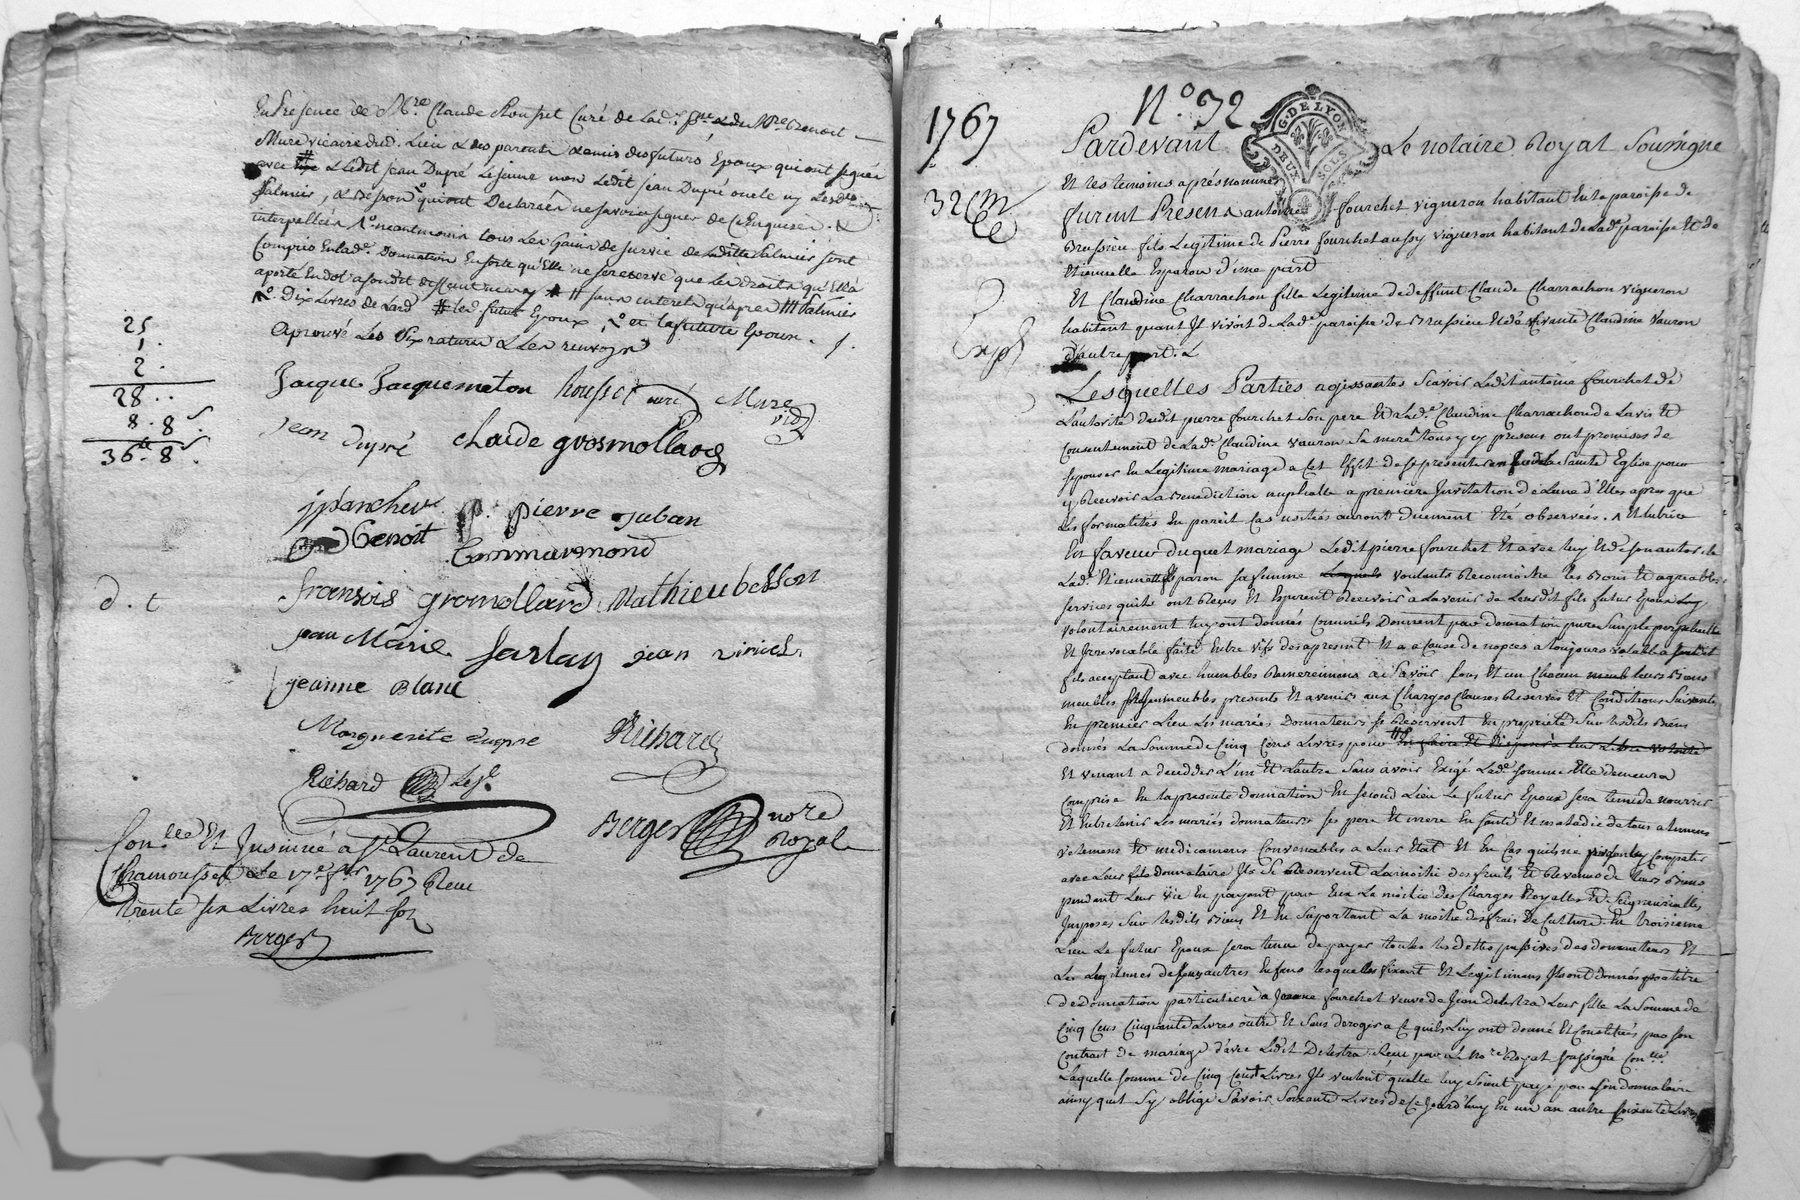 En Presence de Mre. Claude Rousset Curé de lad. pse & de Mre Benoit
Mure vicaire dud. Lieu & des parents & amis des futurs Epoux qui ont signés
avec & Ledit jean Dupré Lejeune non Ledit jean Dupré oncle ny Lesd.
Salmier, & Besson qui ont Declarés ne savoir signer de Ce Enquis &
interpellés neantmoins tous Les Gains de survie de Salmier sont
Compris En lad. Donnation En sorte qu'Elle ne se reserve que Les droits qu'Elle a
aporté En dot a sondit deffunt mary # sans interets qu'apres Salmier
Dix Livres de Lard # led. futur Epoux, et la future Epouse.
Aprouvé Les Ratures & Les renvoys
25
1.
2.
28..
8. 8s.
36tt. 8s.
Jacque Jacquemeton Rousset curé Mure
vic.
jean dupré claude grosmollard
jplanchet p. pierre juban
Benoit Commarmond
d. t
fransois gromollard Mathieu besson
jean Marie Jarlay jean
jeanne Blanc
Morguerite dupre Richard
Richard Lej.
Berger nore
Royal
Conlle Et Insinué a St Laurent de
Chamousset Le 17e 1767 Recu
trente six Livres huit sols
Berger
N°. 32
1767
G. DE LYON
DEUX SOLS
Pardevant Le notaire Royal Soussigné
Et les temoins apres nommés
32
furent Presens antoine fourchet vigneron habitant En la paroisse de
Brussieu fils Legitime de Pierre fourchet aussy vigneron habitant de Lad. paroisse Et de
Etiennette Esparon d'une part
Et Claudine Charrachon fille Legitime de deffunt Claude Charrachon vigneron
habitant quant Il vivoit de Lad. paroisse de Brussieu Et de vivante Claudine vauron
d'autre part. &
Exp
Lesquelles Parties agissantes Scavoir Ledit antoine fourchet de
L'autorité dudit pierre fourchet Son pere Et Lad. Claudine Charrachon de Lavis Et
Consentement de Lad. Claudine vauron Sa mere tous y presens ont promises de
sepouser En Legitime mariage a Cet Effet de se presenter en face de la Sainte Eglise pour
y Recevoir La Benediction nuptialle a premiere Invitation de Lune d'Elles apres que
les formalités En pareil Cas usitées auront Duement Eté observées.
En faveur duquel mariage Ledit pierre fourchet Et avec luy Et de son autorité
Lad. Etiennette Esparon sa femme voulants Reconnoitre les Bons Et agreables
services quils ont Reçus Et Esperent Recevoir a Lavenir de Leurdit fils futur Epoux
volontairement luy ont donnés Comme ils Donnent par donnation pure Simple perpetuelle
Et Irrevocable faite Entre vifs des apresent Et a Cause de nopces a toujours valable
fils aceptant avec humbles Remerciemens a Scavoir tous Et un Chacun Leurs Biens
meubles Et Immeubles presents Et avenirs aux Charges Clauses Reserves Et Conditions Suivantes
En premier Lieu Les mariés Donnateurs se Reservent En proprieté Sur lesdits Biens
donnés La Somme de Cinq Cens Livres pour En faire Et disposer a leur Libre volonté
Et venant a decedder L'un Et Lautre Sans avoir Exigé Lade. somme Elle demeura
Comprise En la presente donnation En second Lieu Le futur Epoux sera tenu de nourrir
Et Entretenir Les mariés donnateurs ses pere Et mere En santé Et maladie de tous alimens
vetemens Et medicamens Convenables a Leur Etat Et En Cas quils ne pussent Compatir
avec Leur fils donnataire Ils se Reservent La moitié des fruits Et Revenus de leurs Biens
pendant Leur vie En payant par Eux La moitié des Charges Royalles Et Seigneurialles
Imposés Sur lesdits Biens Et En Suportant La moitié des frais De Culture. En troisieme
Lieu Le futur Epoux sera tenu de payer toutes les dettes passives des donnateurs Et
Les Legitimes de Leurs autres Enfans lesquelles fixant Et Legitimans Ils ont donnés par titre
de donnation particuliere a Jeanne fourchet veuve de Jean Delestra Leur fille La Somme de
Cinq Cens Cinquante Livres outre Et Sans deroger a Ce quils Luy ont donné Et Constitués par son
Contrat de mariage d'avec Ledit Delestra Recu par Le Nore Royal soussigné Conllé.
Laquelle Somme de Cinq Cens Livres Ils veulent quelle luy soient payé par son donnataire
ainsy quil Sy oblige Savoir Soixante Livres de Ce Jourd'huy En un an autre soixante Livres